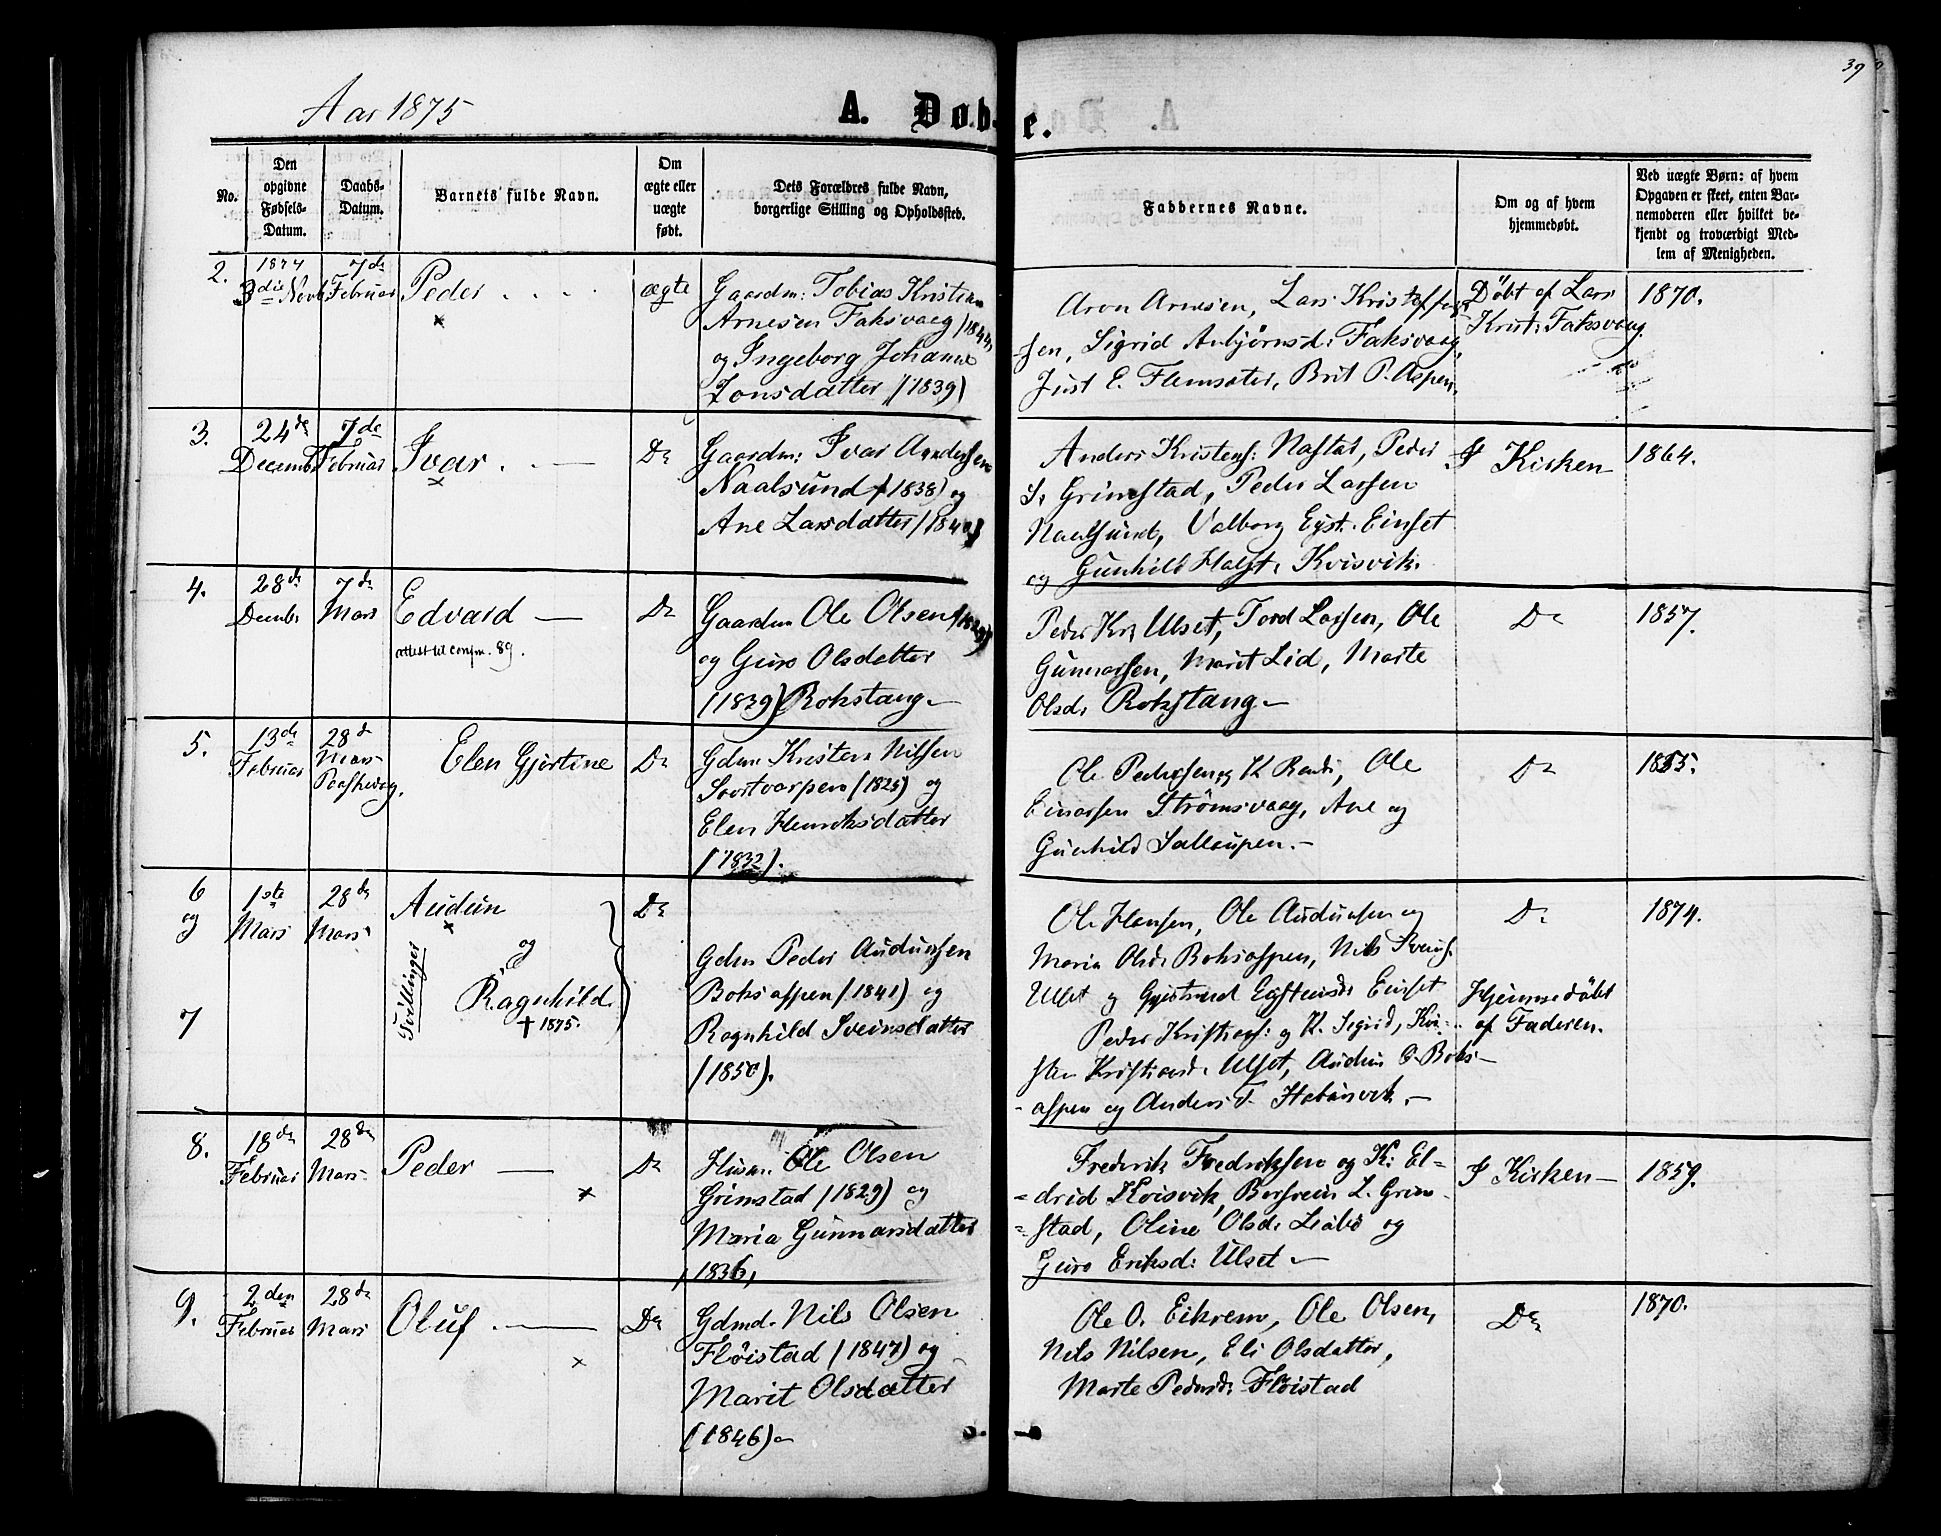 Aar 1875
A. Døbte.
39
No.
Den opgivne Fødsels-Datum.
Daabs-Datum.
Barnets fulde Navn.
Om ægte eller uægte født.
Dets Forældres fulde Navn, borgerlige Stilling og Opholdssted.
Faddernes Navne.
Om og af hvem hjemmedøbt.
Ved uægte Børn: af hvem Opgaven er skeet, enten Barnemoderen eller hvilket bekjendt og troværdigt Medlem af Menigheden.
2.
1874
3die Novb
7de
Februar
Peder
ægte
Gaardm: Tobias Kristian
Arnesen Faksvaag (1844)
og Ingeborg Johanne
Jonsdatter (1839)
Aron Arnesen, Lars Kristoffer-
sen, Sigrid Anbjørnsd: Faksvaag,
Just E. Flemsæter, Brit P. Aspen.
Døbt af Lars
Krist: Faksvaag.
1870.
3.
24de
Decemb
7de
Februar
Ivar
Do
Gaardm: Ivar Andersen
Naalsund (1838) og
Ane Larsdatter (1840)
Anders Kristens: Nastad, Peder
S. Grimstad, Peder Larsen
Naalsund, Valborg Eyst. Einset
og Gunhild Halst. Kvisvik.
I Kirken
1864.
4.
28de
Decmbr
7de
Mars
Edvard
attest til confm. 89.
Do
Gaardm Ole Olsen (1829)
og Guro Olsdatter
(1839) Rokstang
Peder Kr. Ulset, Tord Larsen, Ole
Gunnarsen, Marit Lid, Marte
Olsd. Rokstang
Do
1857.
5.
13de
Februar
28de
Mars
Paaskedag.
Elen Gjertine
Do
Gdm Kristen Nilsen
Svartvarpen (1825) og
Elen Henriksdatter
(1832).
Ole Pedersen og K. Randi, Ole
Einarsen Strømsvaag, Ane og
Gunhild Sallaupen.
Do
1855.
6
og
7
1ste
Mars
28de
Mars
Audun
og
Ragnhild
† 1875.
Tvillinger
Do
Gdm Peder Audunsen
Boksaspen (1841) og
Ragnhild Sveinsdatter
(1850).
Ole Hansen, Ole Audunsen og
Maria Olsd. Boksaspen, Nils Sveins.
Ulset og Gjertrud Eystensd. Einset
Peder Kristians: og K. Sigrid, Kir-
sten Kristiansd. Ulset, Audun O. Boks-
aspen og Anders T.
Do
Hjemmedøbt
af Faderen.
1874.
8.
18de
Februar
28de
Mars
Peder
Do
Husm. Ole Olsen
Grimstad (1829) og
Maria Gunnarsdatter
(1836)
Frederik Fredriksen og K: El-
drid Kvisvik, Bersvein L. Grim-
stad, Oline Olsd. Liabø og
Guro Eriksd: Ulset
I Kirken
1859.
9.
2den
Februar
28de
Mars
Oluf
Do
Gdmd. Nils Olsen
Fløistad (1847) og
Marit Olsdatter
(1846)
Ole O. Eikrem, Ole Olsen,
Nils Nilsen, Eli Olsdatter,
Marte Pedersd. Fløistad
Do
1870.